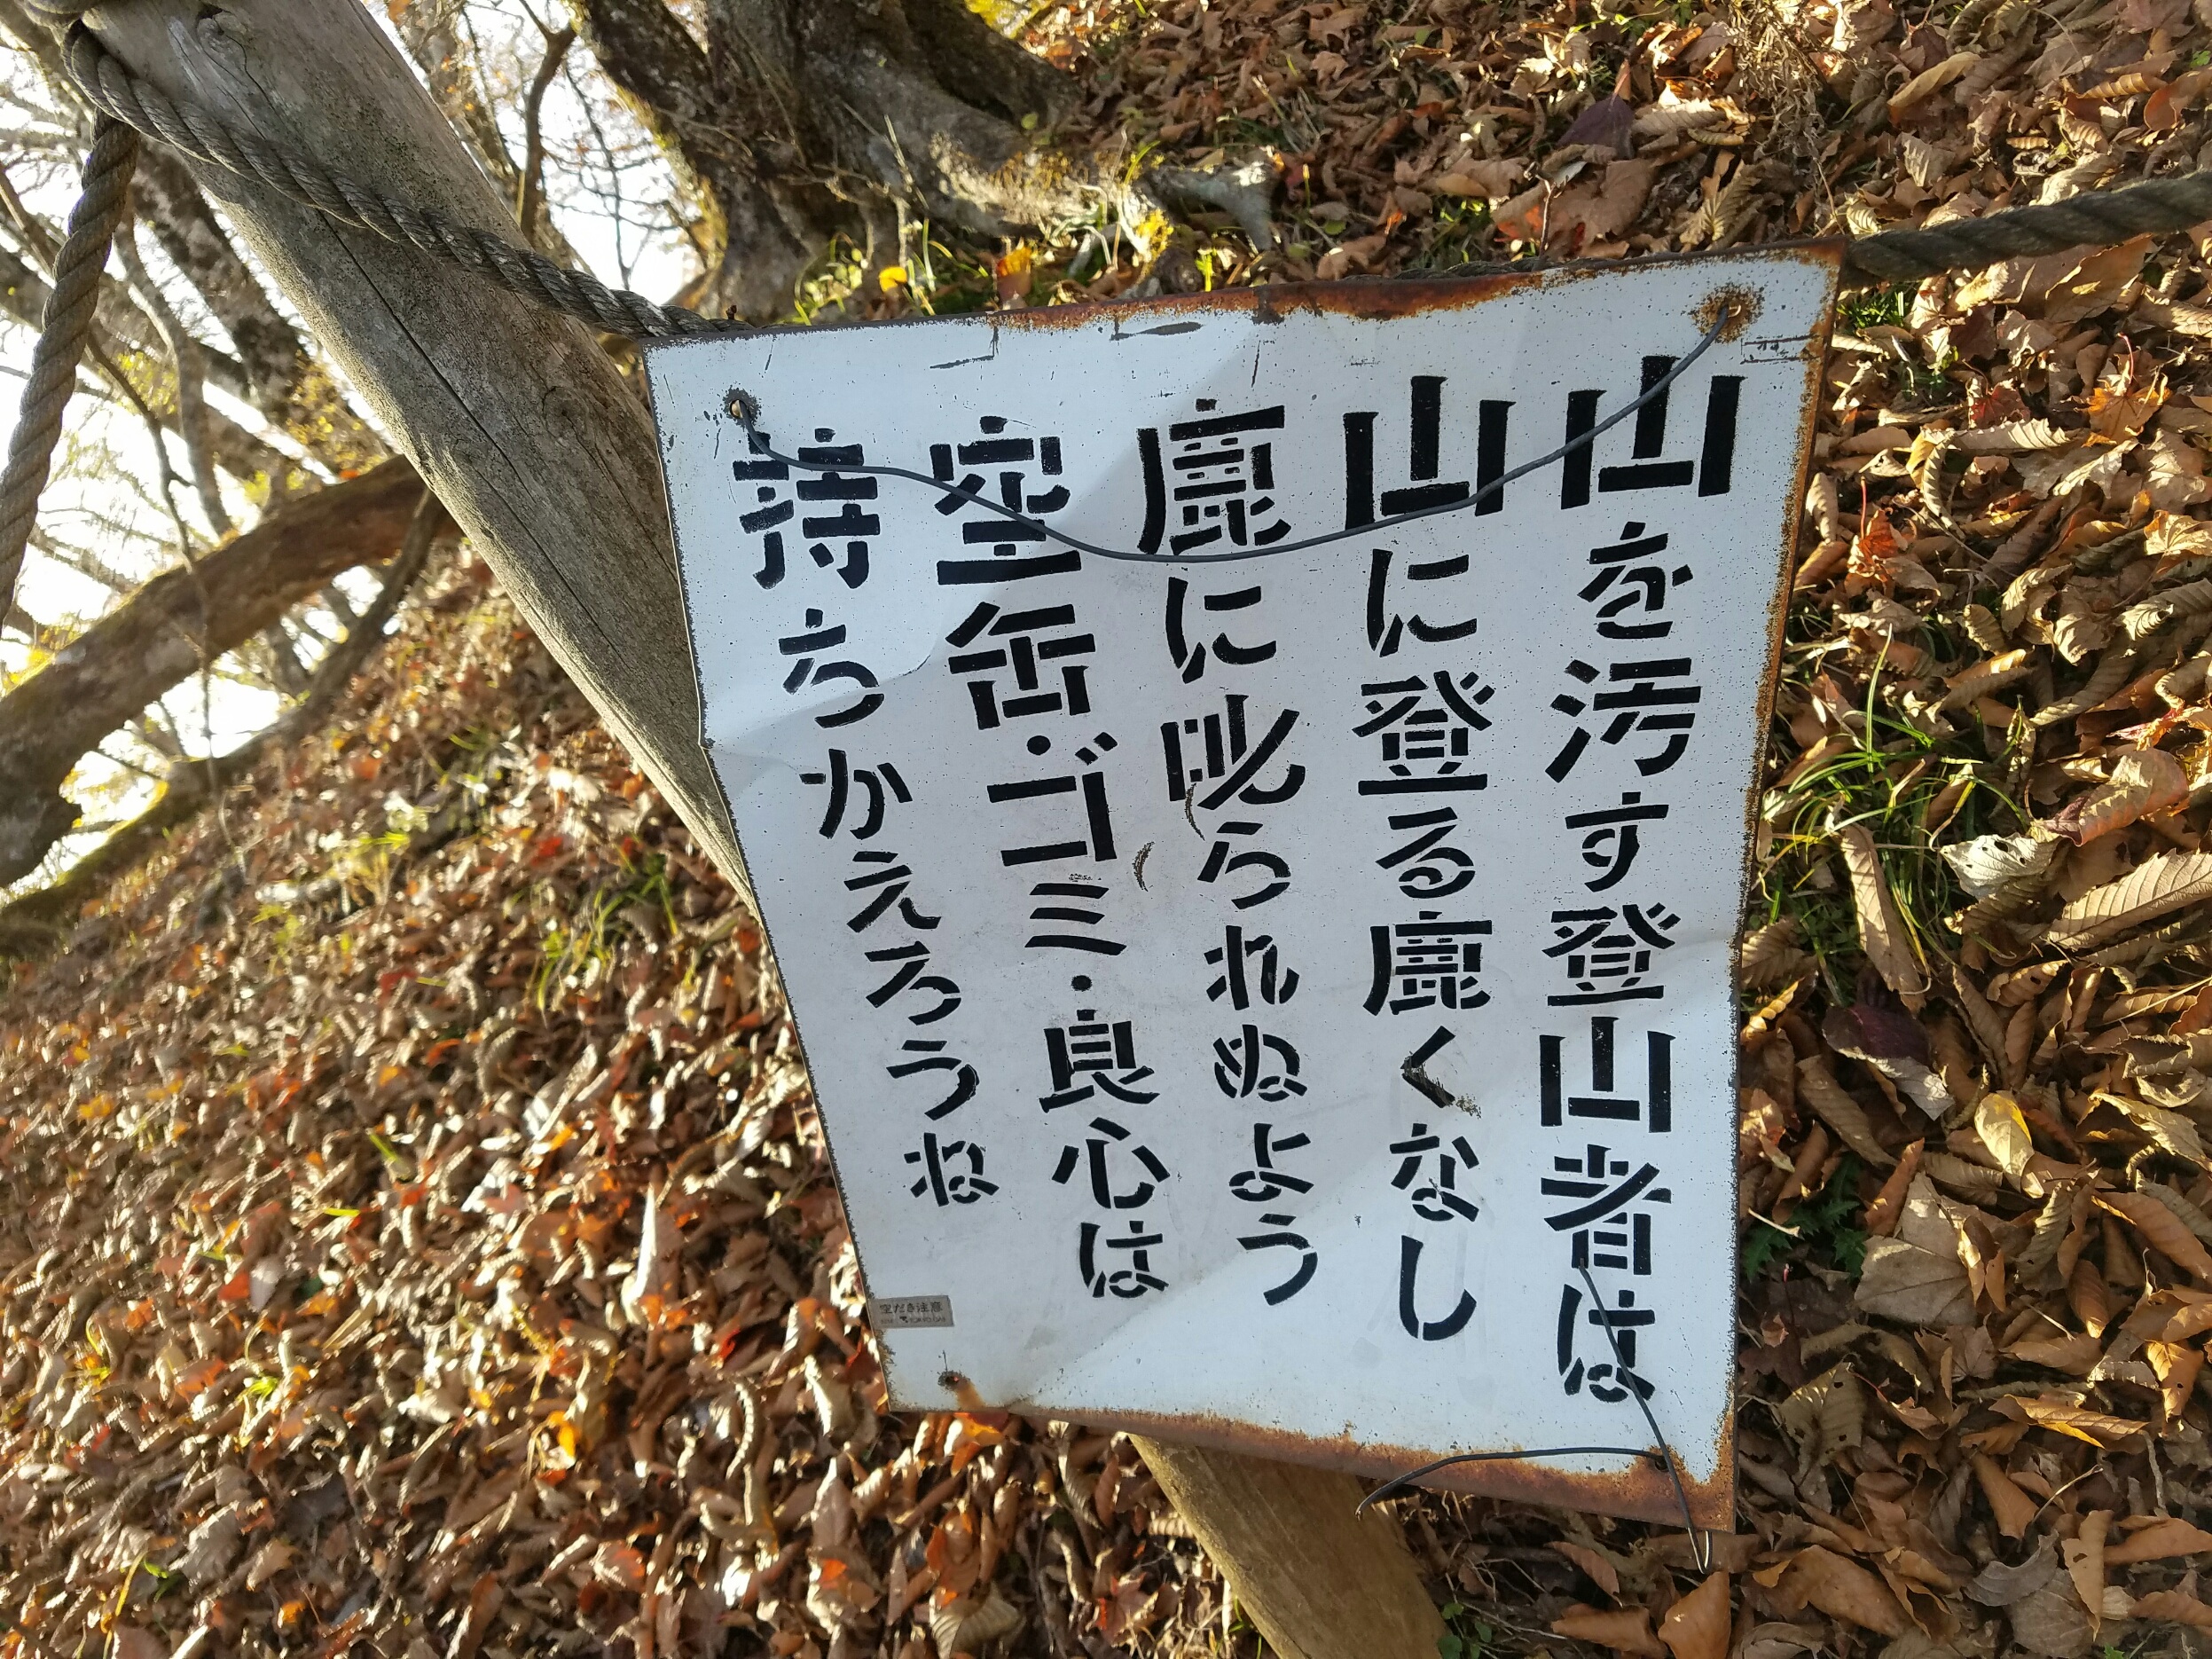 山を汚す登山者は
山に登る鹿くなし
鹿に叱られぬよう
空缶・ゴミ・良心は
持ちかえろうね
空だき注意